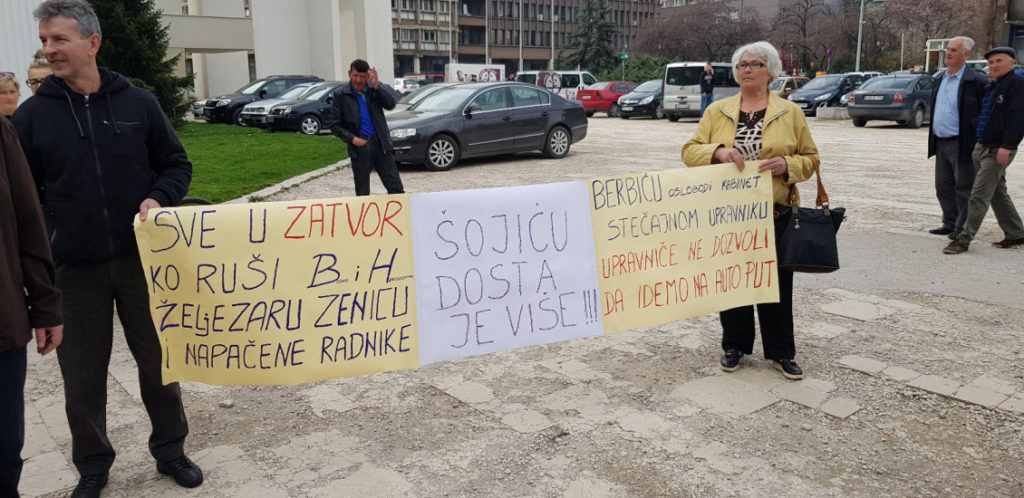 SVE U ZATVOR
KO RUŠI B.i H.
ŽELJEZARU ZENICU
I NAPAČENE RADNIKE
ŠOJIĆU
DOSTA
JE VIŠE!!!
BERBIĆU OSLOBODI KABINET
STEČAJNOM UPRAVNIKU
UPRAVNIČE NE DOZVOLI
DA IDEMO NA AUTO PUT